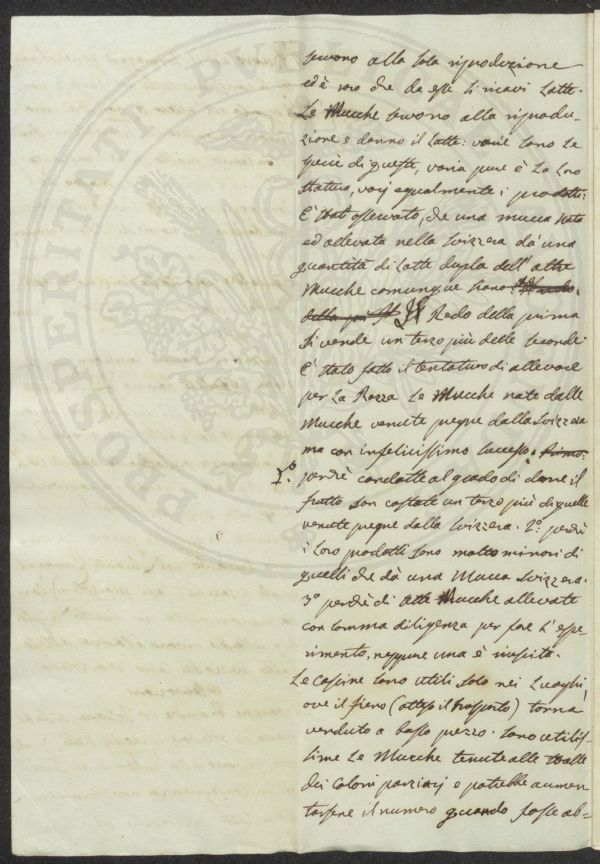 PROSPERITATI PUBLICAE
servono alla sola riproduzione
ed è raro che da esse si ricavi Latte.
Le Mucche servono alla riprodu-
zione e danno il Latte: varie sono le
specie di queste, varia pure è la loro
statura, varj egualmente i prodotti:
È stat' osservato, che una mucca nata
ed allevata nella Svizzera dà una
quantità di Latte dupla dell'altre
Mucche comunque siano.
Il Redo della prima
si vende un terzo più delle seconde.
È stato fatto il tentativo di allevare
per La Razza Le Mucche nate dalle
Mucche venute pregne dalla Svizzera
ma con infelicissimo successo. Primo:
1.° perchè condotte al grado di darne il
frutto son costate un terzo più di quelle
venute pregne dalla Svizzera. 2.° perchè
i Loro prodotti sono molto minori di
quelli che dà una Mucca Svizzera.
3° perchè di Mucche allevate
con somma diligenza per fare l'espe-
rimento, neppure una è riuscita.
Le Cascine sono utili solo nei Luoghi,
ove il fieno (atteso il trasporto) torna
venduto a basso prezzo. Sono utilis-
sime Le Mucche tenute alle stalle
dei Coloni parziarj e potrebbe aumen-
tarsene il numero quando fosse ab=